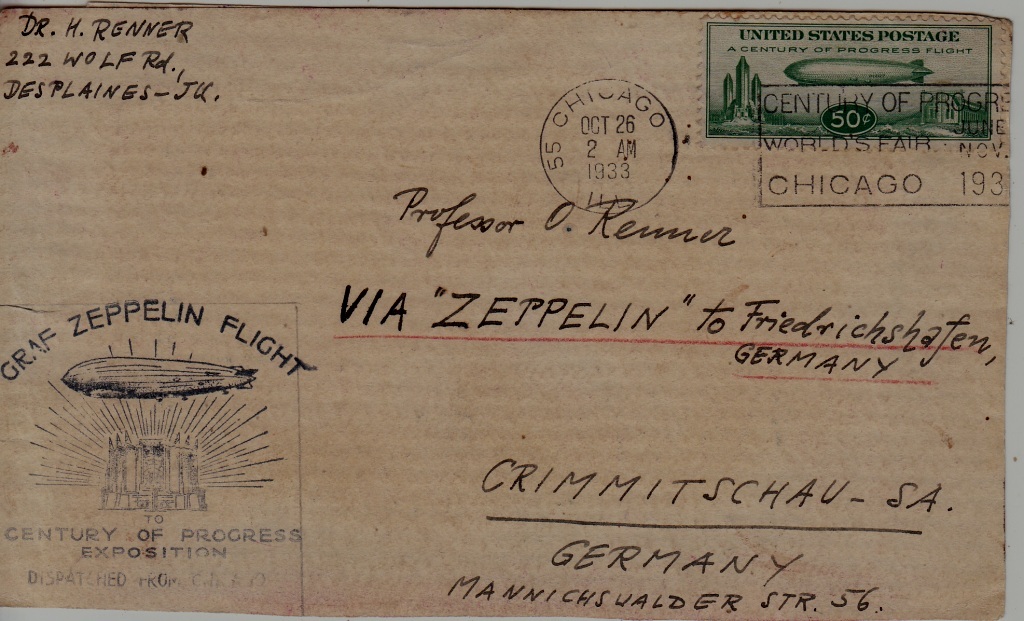 DR. H. RENNER
222 WOLF Rd.,
DESPLAINES-JLL.
UNITED STATES POSTAGE
A CENTURY OF PROGRESS FLIGHT
50¢
55 CHICAGO
OCT 26
2 AM
1933
ILL.
CENTURY OF PROGRE
WORLD'S FAIR
JUNE
NOV.
CHICAGO 193
Professor O. Renner
VIA "ZEPPELIN" to Friedrichshafen,
GERMANY
GRAF ZEPPELIN FLIGHT
TO
CENTURY OF PROGRESS
EXPOSITION
DISPATCHED FROM
CRIMMITSCHAU-SA.
GERMANY
MANNICHSWALDER STR. 56.